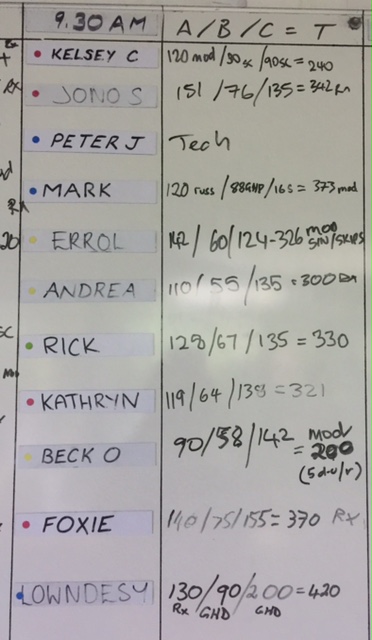 9.30 AM A/B/C = T
KELSEY C 120 mod/90sc/90sc = 240
JONO S 151/76/135 = 342 Rx
PETER J Tech
MARK 120 russ/88GHD/165 = 373 mod
ERROL 142/60/124-326 mod
SIN/SKIPS
ANDREA 110/55/135 = 300 Rx
RICK 128/67/135 = 330
KATHRYN 119/64/138 = 321
BECK O 90/58/142 = 200 mod
(5d.u/r)
FOXIE 140/75/155 = 370 Rx
LOWNDESY 130/90/200 = 420
Rx GHD GHD